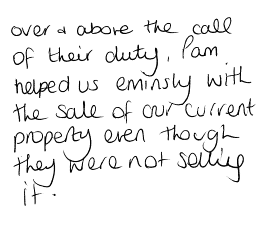 over & above the call
of their duty. Pam
helped us eminsly with
the sale of our current
property even though
they were not selling
it.